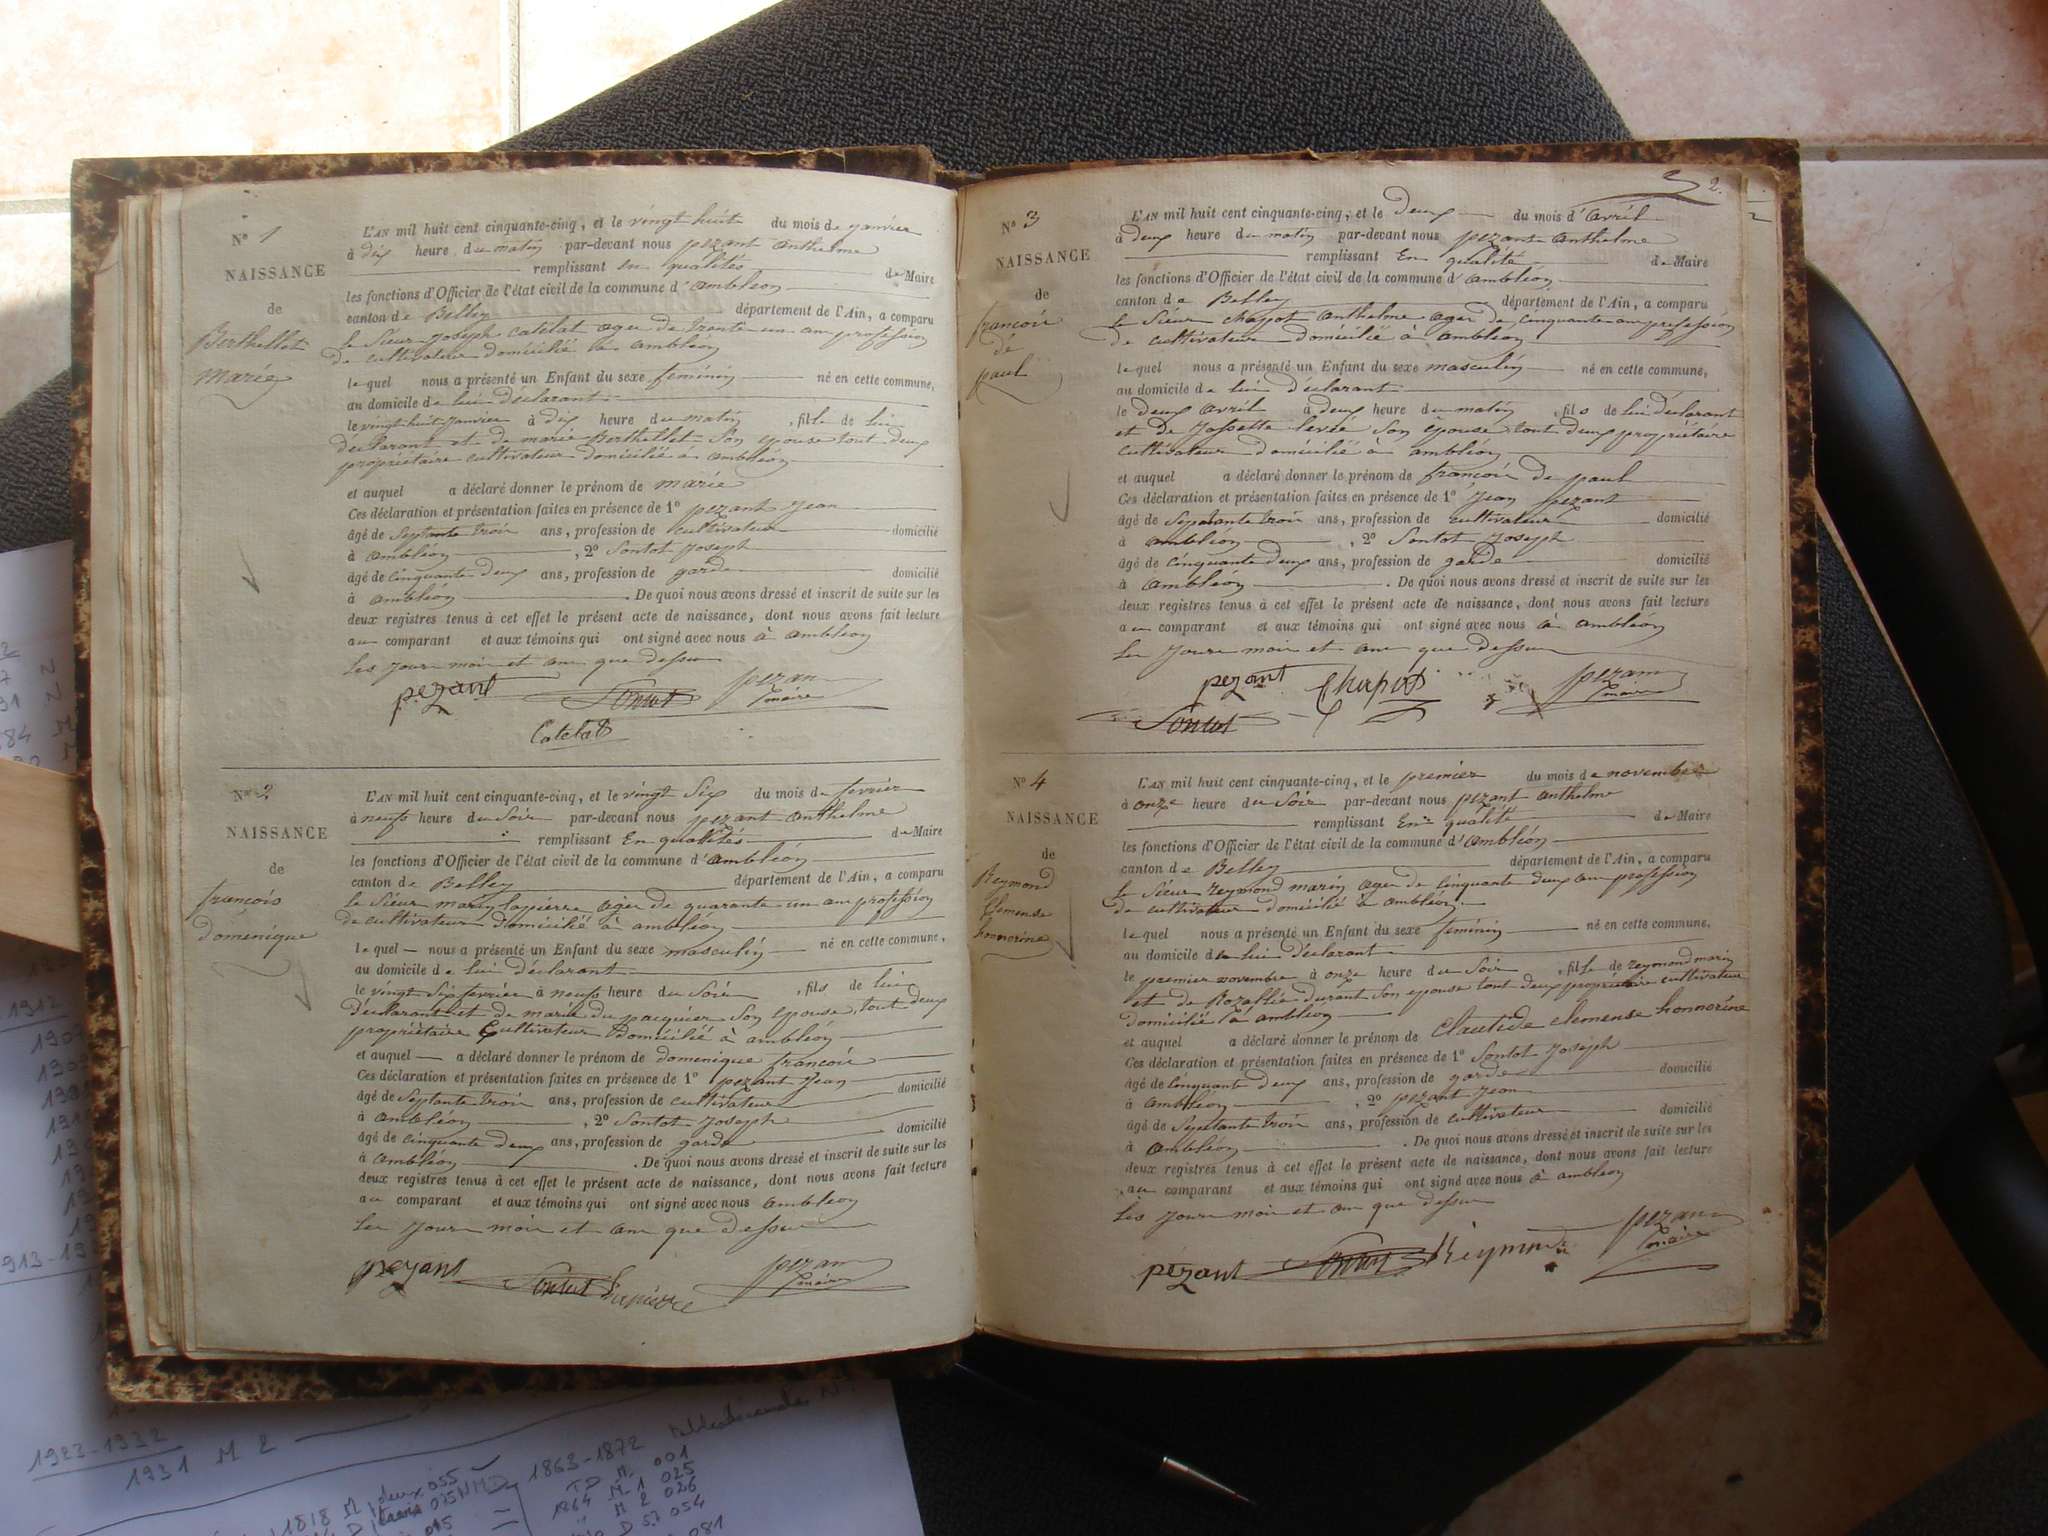 N° 1
NAISSANCE
de
Berthellet
Marie
L'AN mil huit cent cinquante-cinq, et le vingt huit du mois de janvier
à dix heure du matin par-devant nous pezant anthelme
remplissant en qualités de Maire
les fonctions d'Officier de l'état civil de la commune d'ambléon
canton de Belley département de l'Ain, a comparu
le Sieur joseph catelat ager de trente un an profession
de cultivateur domicilié à ambléon
lequel nous a présenté un Enfant du sexe feminin né en cette commune,
au domicile de lui déclarant
le vingt huit janvier à dix heure du matin, fille de lui
déclarant et de marie Berthellet Son epouse tout deux
propriétaire cultivateur domicilié à ambléon
et auquel a déclaré donner le prénom de marie
Ces déclaration et présentation faites en présence de 1° pezant Jean
âgé de Septante troir ans, profession de cultivateur domicilié
à ambléon, 2° Sontot Joseph
âgé de cinquante deux ans, profession de garde domicilié
à ambléon. De quoi nous avons dressé et inscrit de suite sur les
deux registres tenus à cet effet le présent acte de naissance, dont nous avons fait lecture
au comparant et aux témoins qui ont signé avec nous à ambléon
Les jour moir et an que dessu
pezant Sontot pezan
maire
Catelat
N° 2
NAISSANCE
de
françois
domenique
L'AN mil huit cent cinquante-cinq, et le vingt Six du mois de fevrier
à neufs heure du Soir par-devant nous pezant anthelme
remplissant En qualités de Maire
les fonctions d'Officier de l'état civil de la commune d'ambléon
canton de Belley département de l'Ain, a comparu
le Sieur marin lapierre ager de quarante un an profession
de cultivateur domicilié à ambléon
lequel nous a présenté un Enfant du sexe masculin né en cette commune,
au domicile de lui déclarant
le vingt Six fevrier à neufs heure du Soir, fils de lui
déclarant et de marie du pacquier Son epouse, tout deux
propriétaire Cultivateur Domicilié à ambléon
et auquel a déclaré donner le prénom de domenique francoir
Ces déclaration et présentation faites en présence de 1° pezant Jean
âgé de Septante troir ans, profession de cultivateur domicilié
à ambléon, 2° Sontot Joseph
âgé de cinquante deux ans, profession de garde domicilié
à ambléon. De quoi nous avons dressé et inscrit de suite sur les
deux registres tenus à cet effet le présent acte de naissance, dont nous avons fait lecture
au comparant et aux témoins qui ont signé avec nous ambléon
Les jour moir et an que dessu
pezant Sontot Lapierre pezan
maire
2.
N° 3
NAISSANCE
de
françoir
dé
paul
L'AN mil huit cent cinquante-cinq, et le deux du mois d'avril
à deux heure du matin par-devant nous pezant anthelme
remplissant En qualité de Maire
les fonctions d'Officier de l'état civil de la commune d'ambléon
canton de Belley département de l'Ain, a comparu
le Sieur chapot anthelme ager de cinquante an profession
de cultivateur domicilié à ambléon
lequel nous a présenté un Enfant du sexe masculin né en cette commune,
au domicile de lui déclarant
le deux avril à deux heure du matin, fils de lui déclarant
et de Josette levée Son epouse tout deux propriétaire
cultivateur domicilié à ambléon
et auquel a déclaré donner le prénom de francoir de paul
Ces déclaration et présentation faites en présence de 1° Jean pezant
âgé de Septante troir ans, profession de cultivateur domicilié
à ambléon, 2° Sontot Joseph
âgé de cinquante deux ans, profession de garde domicilié
à ambléon. De quoi nous avons dressé et inscrit de suite sur les
deux registres tenus à cet effet le présent acte de naissance, dont nous avons fait lecture
au comparant et aux témoins qui ont signé avec nous à ambléon
Les jours moir et an que dessu
pezant Chapot pezan
maire
Sontot
N° 4
NAISSANCE
de
Reymond
Clemense
honnorine
L'AN mil huit cent cinquante-cinq, et le premier du mois de novembre
à onze heure du Soir par-devant nous pezant anthelme
remplissant En qualité de Maire
les fonctions d'Officier de l'état civil de la commune d'ambléon
canton de Belley département de l'Ain, a comparu
le Sieur reymond marin ager de cinquante deux an profession
de cultivateur domicilié à ambléon
lequel nous a présenté un Enfant du sexe feminin né en cette commune,
au domicile de lui déclarant
le premier novembre à onze heure du Soir, fille de reymond marin
et de Rozallie durant Son epouse tout deux propriétaire cultivateur
domicilié à ambléon
et auquel a déclaré donner le prénom de Clautide clemense honnorine
Ces déclaration et présentation faites en présence de 1° Sontot Joseph
âgé de cinquante deux ans, profession de garde domicilié
à ambléon, 2° pezant Jean
âgé de Séptante troir ans, profession de cultivateur domicilié
à ambléon. De quoi nous avons dressé et inscrit de suite sur les
deux registres tenus à cet effet le présent acte de naissance, dont nous avons fait lecture
au comparant et aux témoins qui ont signé avec nous à ambléon
Les jour moir et an que dessu
pezant Sontot Reymond pezan
maire
1912
1923-1932
1931 M 2
1818 M deux 055
1863-1872
TD M 001
1864 M 1 025
" M 2 026
D 57 054
081